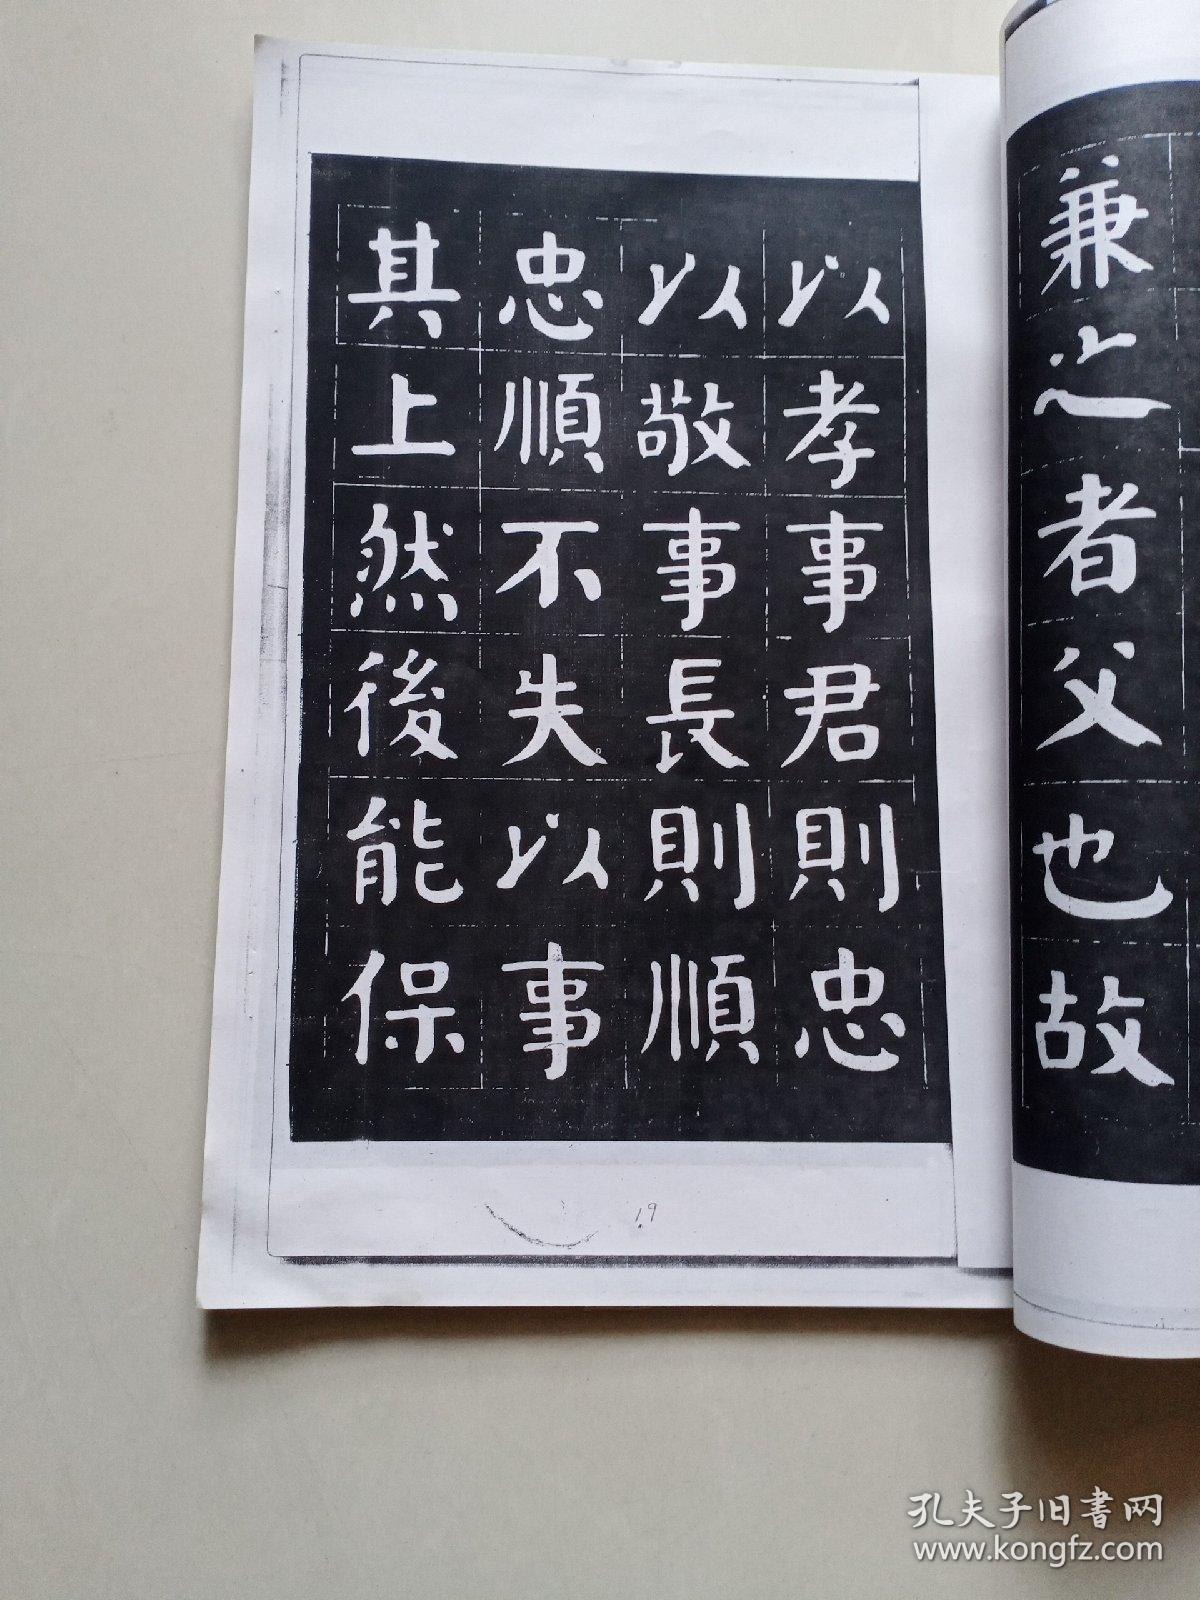 兼之者父也故
以孝事君則忠
以敬事長則順
忠順不失以事
其上然後能保
19
孔夫子旧书网
www.kongfz.com